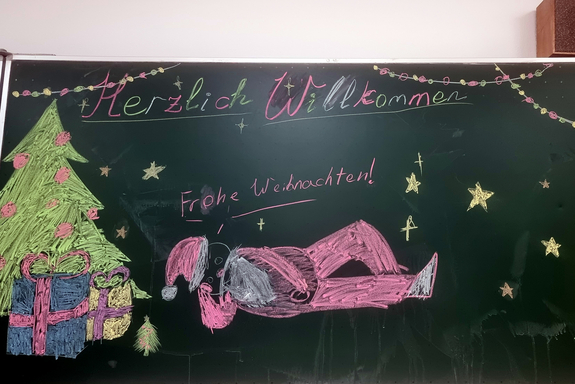 Herzlich Willkommen
Frohe Weihnachten!